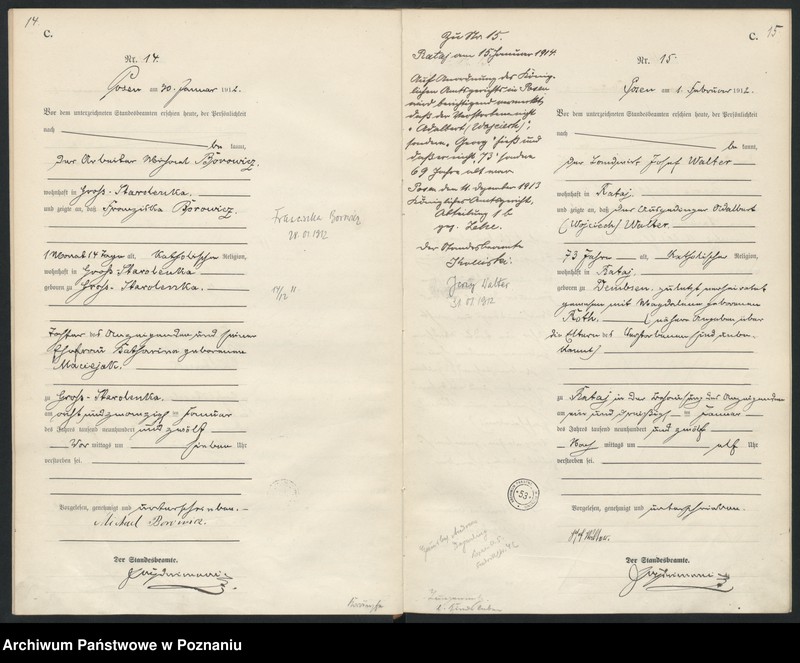 14.
C.
Nr. 14.
Posen am 30. Januar 1912.
Vor dem unterzeichneten Standesbeamten erschien heute, der Persönlichkeit
nach
be kannt,
der Arbeiter Michael Borowicz.
wohnhaft in Groß-Starolenka.
und zeigte an, daß Franziska Borowicz.
1 Monat 14 Tage alt, Katholischer Religion,
wohnhaft in Groß Starolenka
geboren zu Groß-Starolenka.
Tochter des Anzeigenden und seiner
Ehefrau Katharina geborenen
Maciejak.
zu Groß-Starolenka.
am acht und zwanzig ten Januar
des Jahres tausend neunhundert und zwölf
Vor mittags um sieben Uhr
verstorben sei.
Vorgelesen, genehmigt und unterschrieben.
Michael Borowicz.
Der Standesbeamte.
Franciszka Borowicz
28.01.1912
14/12 11
Zu Nr. 15.
Rataj am 15 Januar 1914.
Auf Anordnung des König-
lichen Amtsgerichts in Posen
wird berichtigend vermerkt,
daß der Verstorbene nicht
"Adalbert (Wojciech)",
sondern "Georg" hieß und
daß er nicht "73" sondern
69 Jahre alt war.
Posen den 11. Dezember 1913
Königliches Amtsgericht,
Abteilung 1 b
Der Standesbeamte
Jerzy Walter
31.01.1912
53
15
C.
Nr. 15.
Posen am 1. Februar 1912.
Vor dem unterzeichneten Standesbeamten erschien heute, der Persönlichkeit
nach
be kannt,
der Landwirt Josef Walter
wohnhaft in Rataj.
und zeigte an, daß der Ausgedinger Adalbert
(Wojciech) Walter.
73 Jahre alt, Katholischer Religion,
wohnhaft in Rataj.
geboren zu Dembsen, zuletzt verheiratet
gewesen mit Magdalena geborenen
Roth. (nähere Angaben über
die Eltern des Verstorbenen sind unbe-
kannt)
zu Rataj in der Behausung des Anzeigenden
am ein und dreißigsten Januar
des Jahres tausend neunhundert und zwölf
Nach mittags um elf Uhr
verstorben sei.
Vorgelesen, genehmigt und unterschrieben.
Der Standesbeamte.
Archiwum Państwowe w Poznaniu